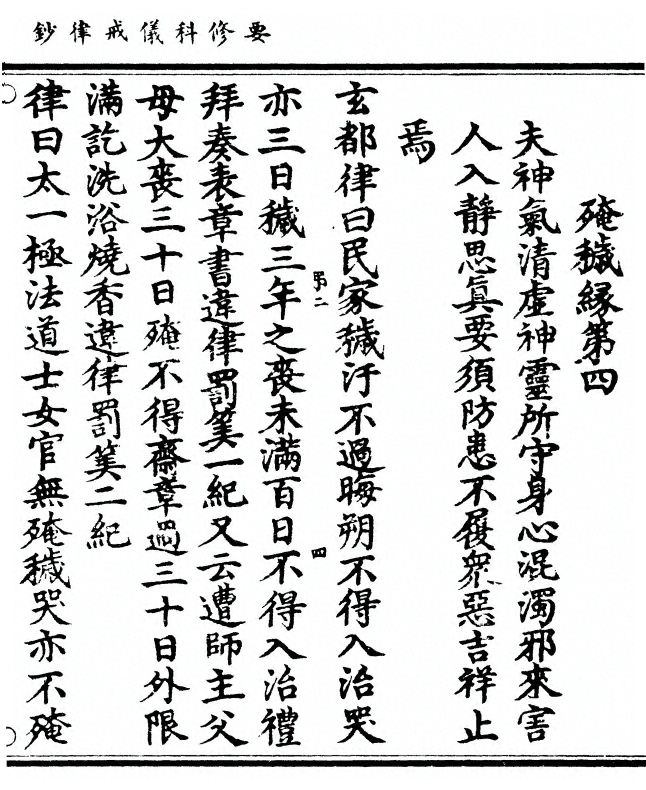 要修科儀戒律鈔
殗穢緣第四
夫神氣清虛神靈所守身心混濁邪來害
人入靜思眞要須防患不履衆惡吉祥止
焉
玄都律曰民家穢汙不過晦朔不得入治哭
弟二
四
亦三日穢三年之喪未滿百日不得入治禮
拜奏表章書違律罰筭一紀又云遭師主父
母大喪三十日殗不得齋章過三十日外限
滿訖洗浴燒香違律罰筭二紀
律曰太一極法道士女官無殗穢哭亦不殗